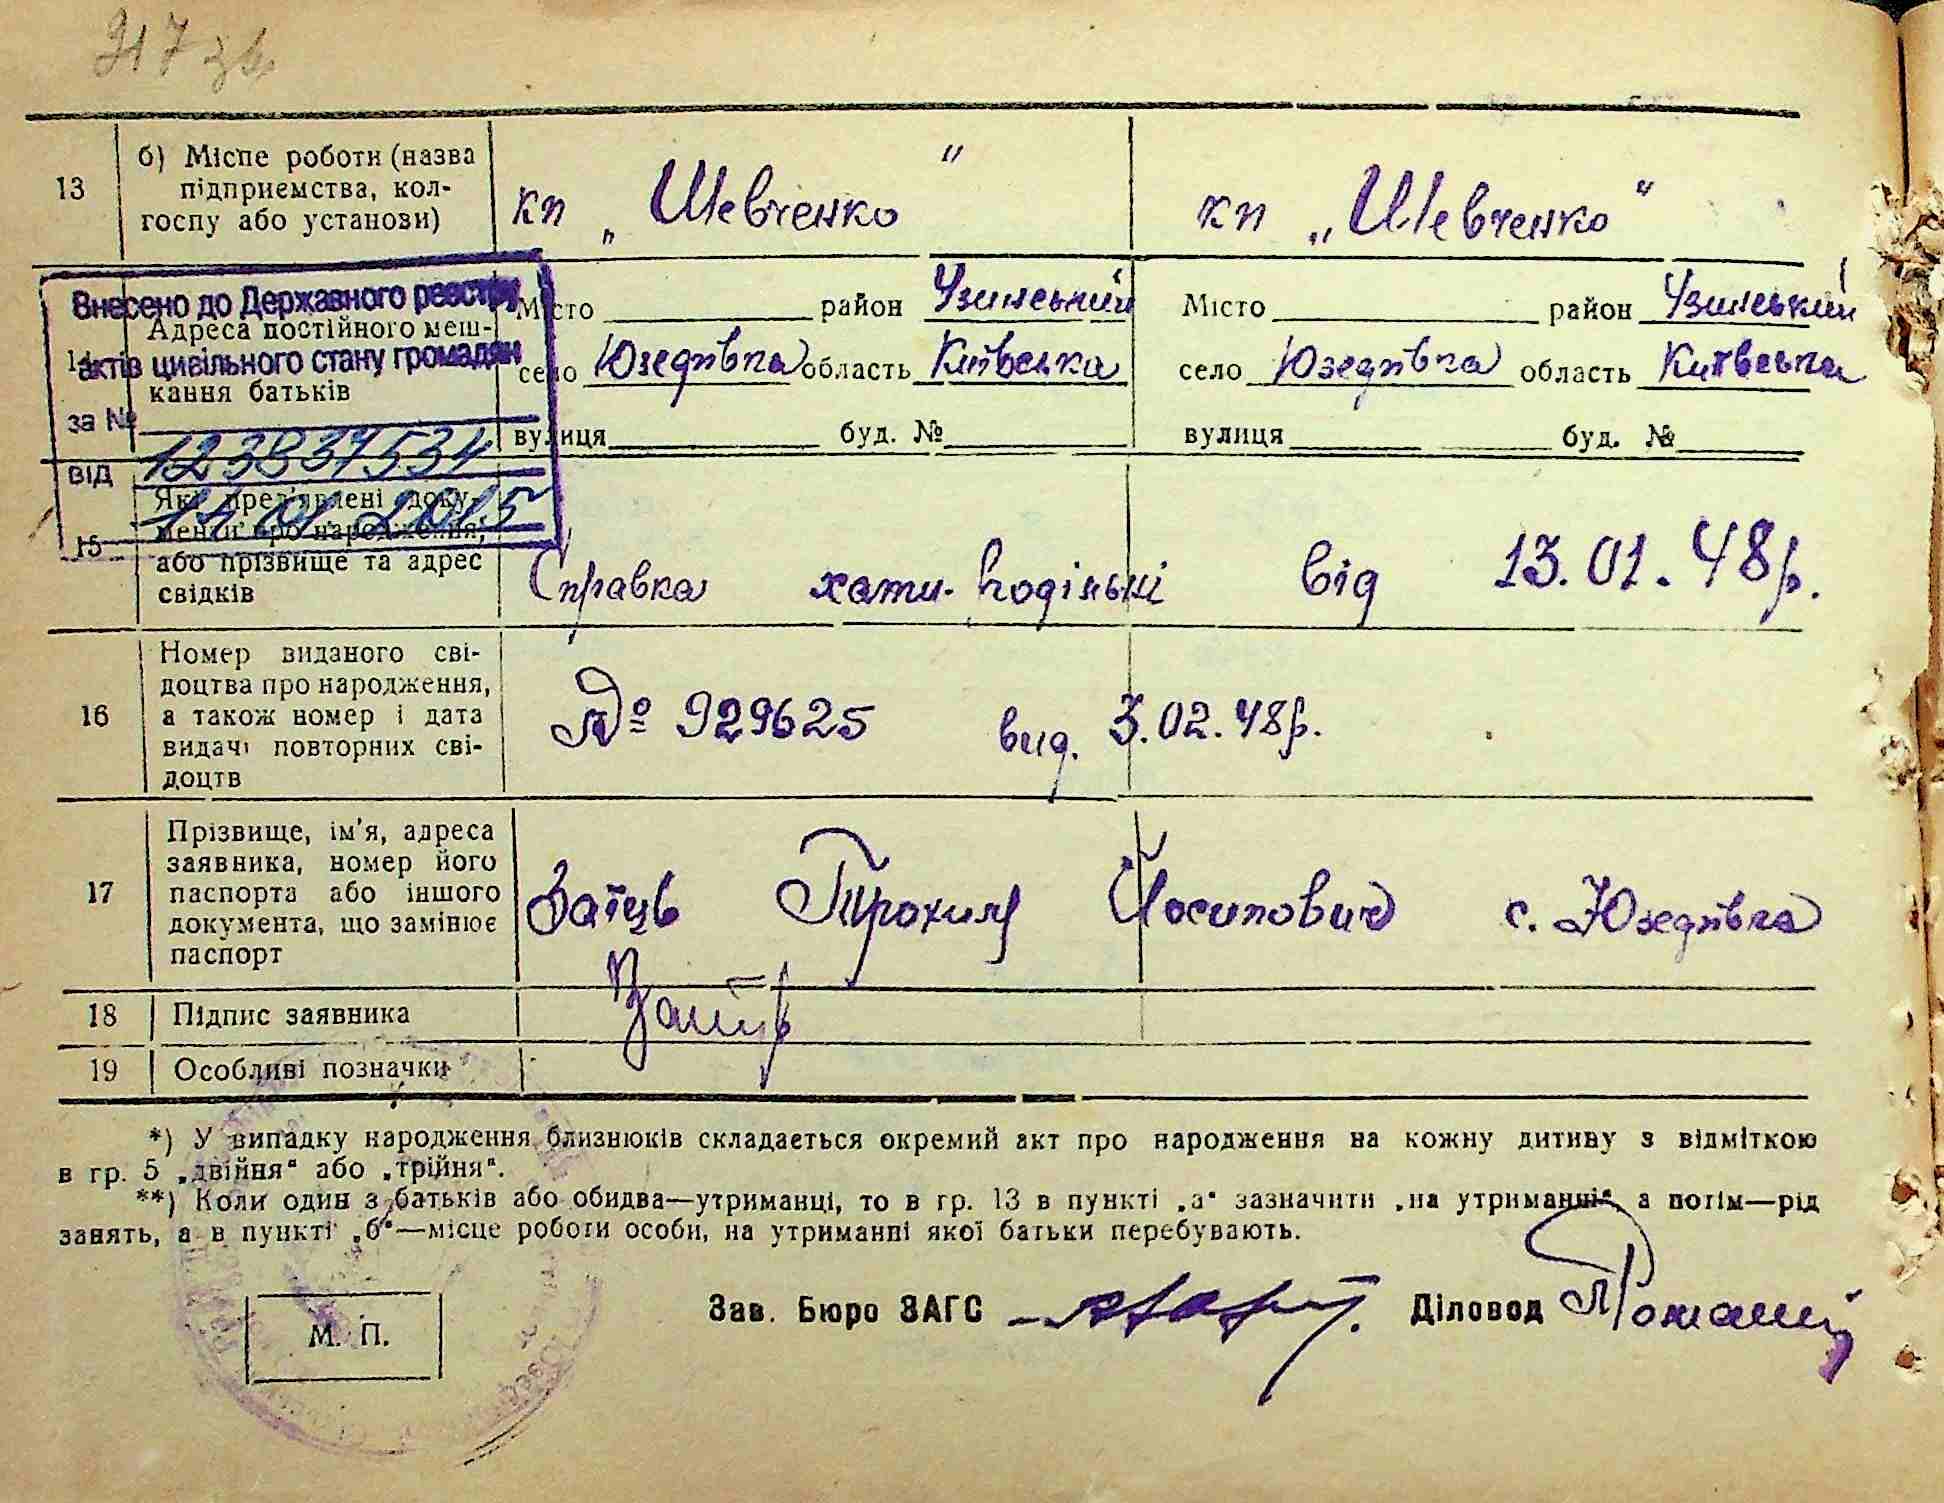 317 зв
13
б) Місце роботи (назва
підприємства, кол-
госпу або установи)
кп „Шевченко"
кп „Шевченко"
Внесено до Державного реєстру
актів цивільного стану громадян
за № 123837534
від 14 01 2015
Адреса постійного меш-
кання батьків
Місто район Узинський
село Юзефівка область Київська
вулиця буд. №
Місто район Узинський
село Юзефівка область Київська
вулиця буд. №
15
Які пред'явлені доку-
менти про народження,
або прізвище та адрес
свідків
Справка хати-родільні від 13.01.48р.
16
Номер виданого сві-
доцтва про народження,
а також номер і дата
видачі повторних сві-
доцтв
№ 929625 вид. 3.02.48р.
17
Прізвище, ім'я, адреса
заявника, номер його
паспорта або іншого
документа, що замінює
паспорт
Заїць Трохим Йосипович с. Юзефівка
18
Підпис заявника
Заїць
19
Особливі позначки
*) У випадку народження близнюків складається окремий акт про народження на кожну дитину з відміткою
в гр. 5 „двійня" або „трійня".
**) Коли один з батьків або обидва—утриманці, то в гр. 13 в пункті „а" зазначити „на утриманні", а потім—рід
занять, а в пункті „б"—місце роботи особи, на утриманні якої батьки перебувають.
М. П.
Зав. Бюро ЗАГС
Діловод